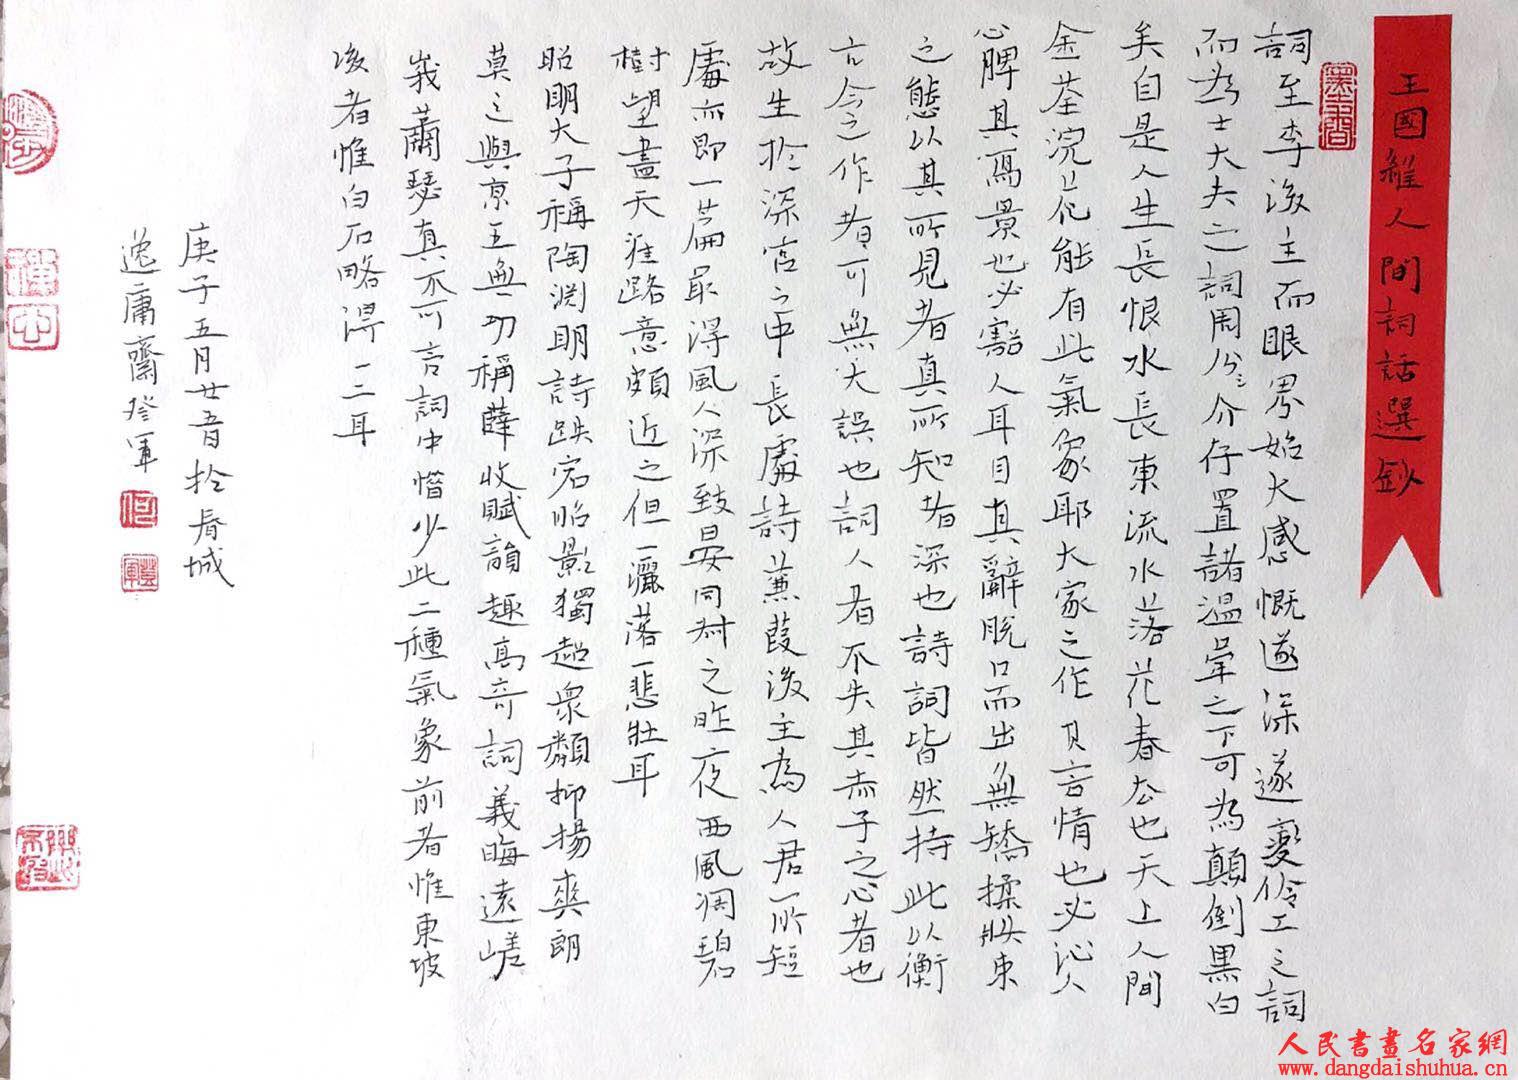 王國維人間詞話選鈔
詞至李後主而眼界始大感慨遂深遂變伶工之詞
而為士大夫之詞周介存置諸溫韋之下可為顛倒黑白
矣自是人生長恨水長東流水落花春去也天上人間
金荃浣花能有此氣象耶大家之作其言情也必沁人
心脾其寫景也必豁人耳目其辭脫口而出無矯揉妝束
之態以其所見者真所知者深也詩詞皆然持此以衡
古今之作者可無大誤也詞人者不失其赤子之心者也
故生於深宮之中長處詩蒹葭後主為人君所短
處而即一篇最得風人深致晏同叔之昨夜西風凋碧
樹望盡天涯路意頗近之但一灑落一悲壯耳
昭明太子稱陶淵明詩跌宕昭彰獨超眾類抑揚爽朗
莫之與京王無功稱薛收賦韻趣高奇詞義晦遠嵯
峨蕭瑟真不可言詞中惜少此二種氣象前者惟東坡
後者惟白石略得一二耳
庚子五月廿五日於春城
逸庸齋登軍
人民書畫名家網
www.dangdaishuhua.cn